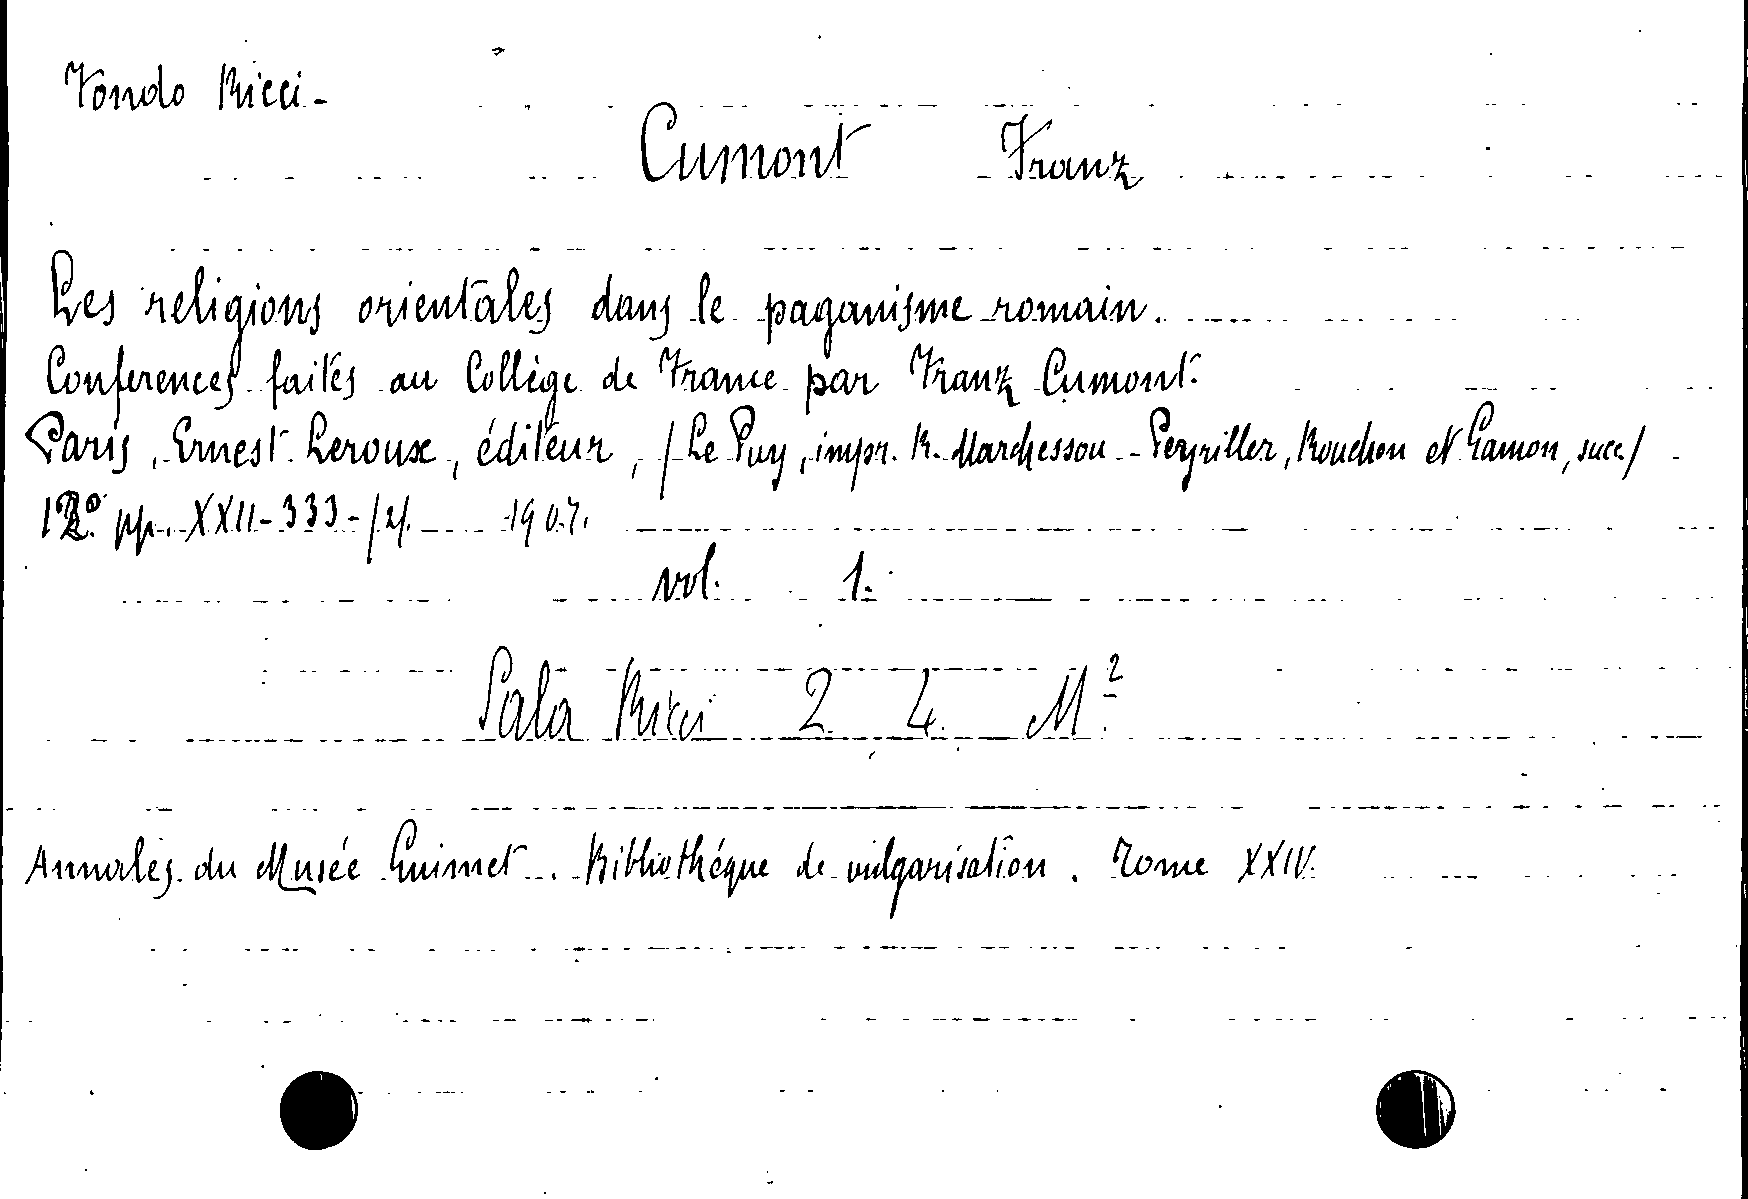 Fondo Ricci -
Cumont Franz
Les religions orientales dans le paganisme romain.
Conferences faites au Collège de France par Franz Cumont.
Paris, Ernest Leroux, éditeur, / Le Puy, impr. R. Marchessou - Peyriller, Rouchon et Gamon, succ /
12º pp. XXII-333-/2/. 1907.
vol. 1.
Sala Ricci 2 4. M.²
Annales du Musée Guimet. Bibliothéque de vulgarisation. Tome XXIV.